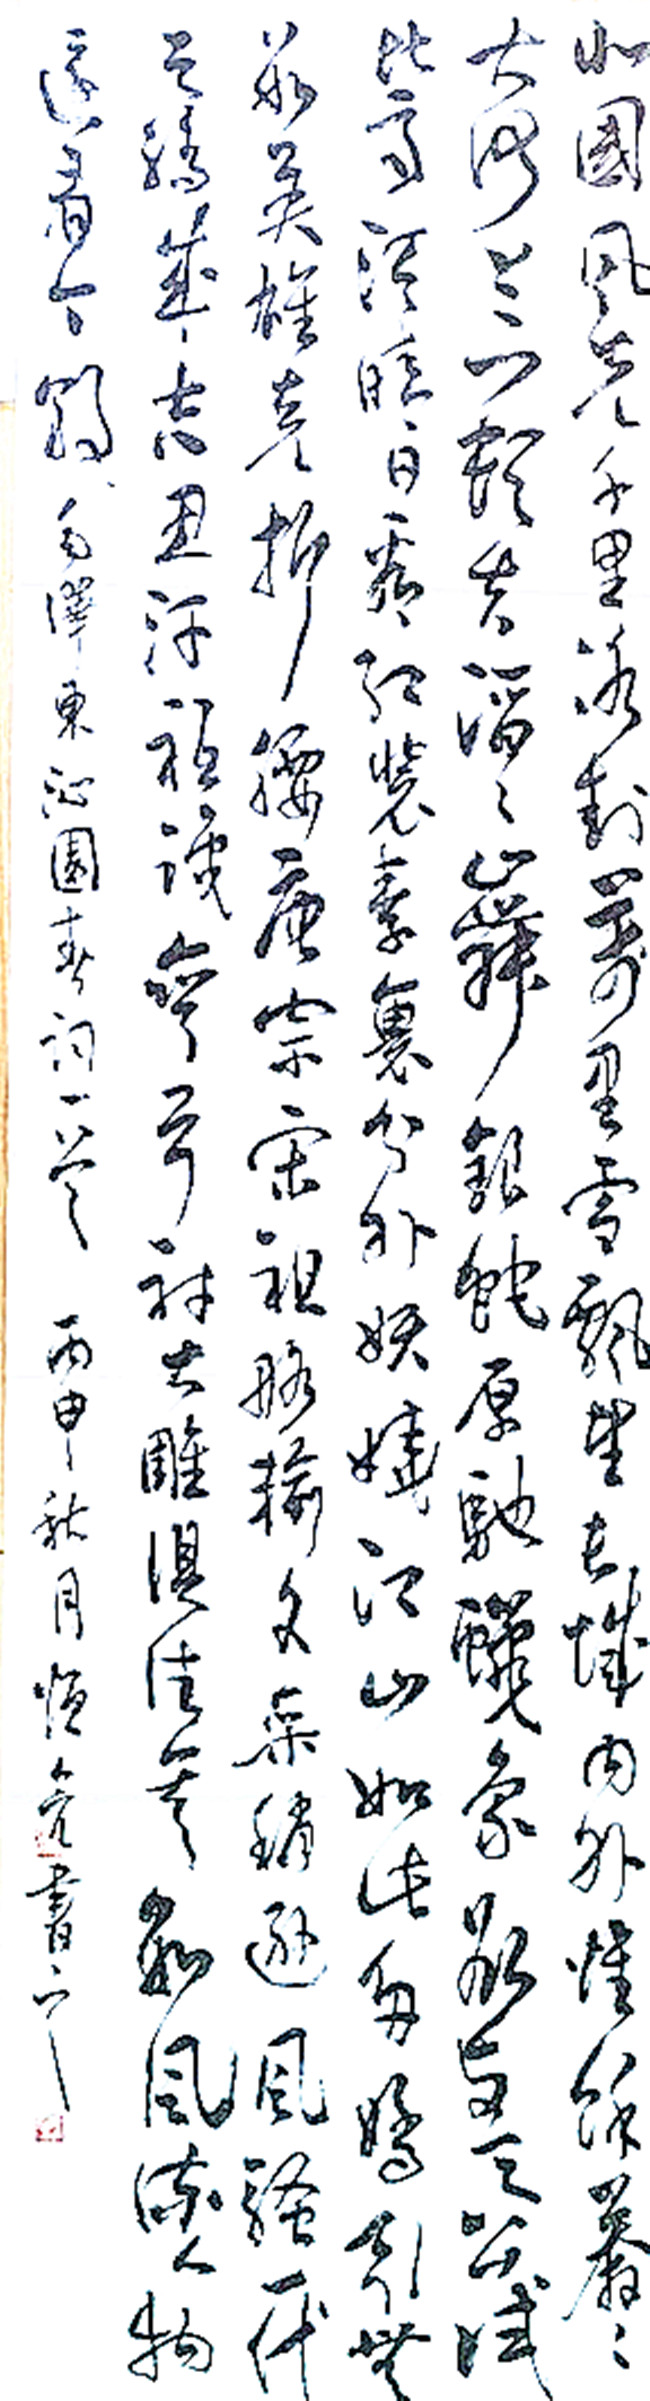 北國風光千里冰封萬里雪飄望長城內外惟餘莽々
大河上下頓失滔々山舞銀蛇原馳蠟象欲與天公試
比高須晴日看紅裝素裹分外妖嬈江山如此多嬌引無
數英雄竞折腰唐宗宋祖略輸文采稍遜風騷一代
天驕成吉思汗祗識彎弓射大雕俱往矣數風流人物
還看今朝 毛澤東沁園春詞一首 丙申秋月恒書